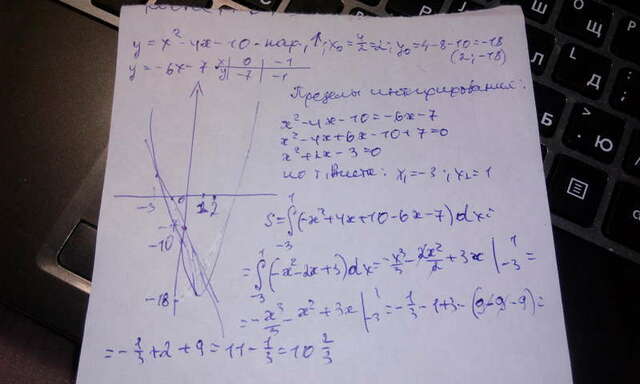 y = x² - 4x - 10 - пар, ↑; x₀ = 4/2 = 2; y₀ = 4 - 8 - 10 = -18
(2; -18)
y = -6x - 7 x 0 -1
y -7 -1
Пределы интегрирования:
x² - 4x - 10 = -6x - 7
x² - 4x + 6x - 10 + 7 = 0
x² + 2x - 3 = 0
по т. Виета: x₁ = -3; x₂ = 1
-3 0 1 2
-7
-10
-18
S = ∫₋₃¹ (-x² + 4x + 10 - 6x - 7) dx =
= ∫₋₃¹ (-x² - 2x + 3) dx = -x³/3 - 2x²/2 + 3x |₋₃¹ =
= -x³/3 - x² + 3x |₋₃¹ = -1/3 - 1 + 3 - (9 - 9 - 9) =
= -1/3 + 2 + 9 = 11 - 1/3 = 10 2/3